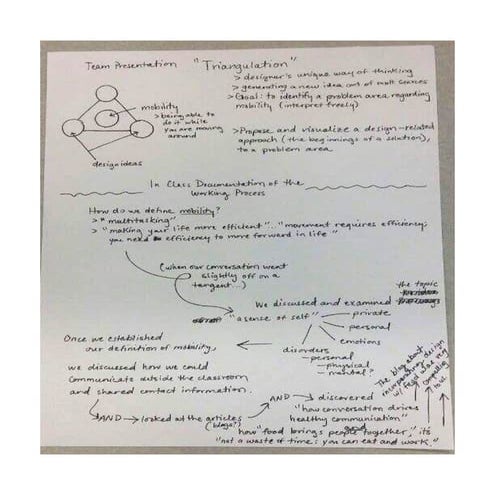 Team Presentation "Triangulation"
> designer's unique way of thinking
> generating a new idea out of mult sources
> Goal: to identify a problem area regarding
mobility (interpret freely)
mobility
> being able to
do it while
you are moving
around
> Propose and visualize a design-related
approach (the beginnings of a solution),
to a problem area
design ideas
In Class Documentation of the
Working Process
How do we define mobility?
> * multitasking"
> "making your life more efficient"... "movement requires efficiency;
you need efficiency to move forward in life"
(when our conversation went
slightly off on a
tangent...)
the topic
We discussed and examined
"a sense of self"
private
personal
emotions
disorders
- personal
- physical
- mental?
Once we established
our definition of mobility,
we discussed how we could
communicate outside the classroom
and shared contact information.
AND → looked at the articles
(blogs?)
AND → discovered
"how conversation drives
healthy communication"
how "food brings people together," it's
"not a waste of time: you can eat and work."
The blog about
incorporating design
w/ food was my
compelling